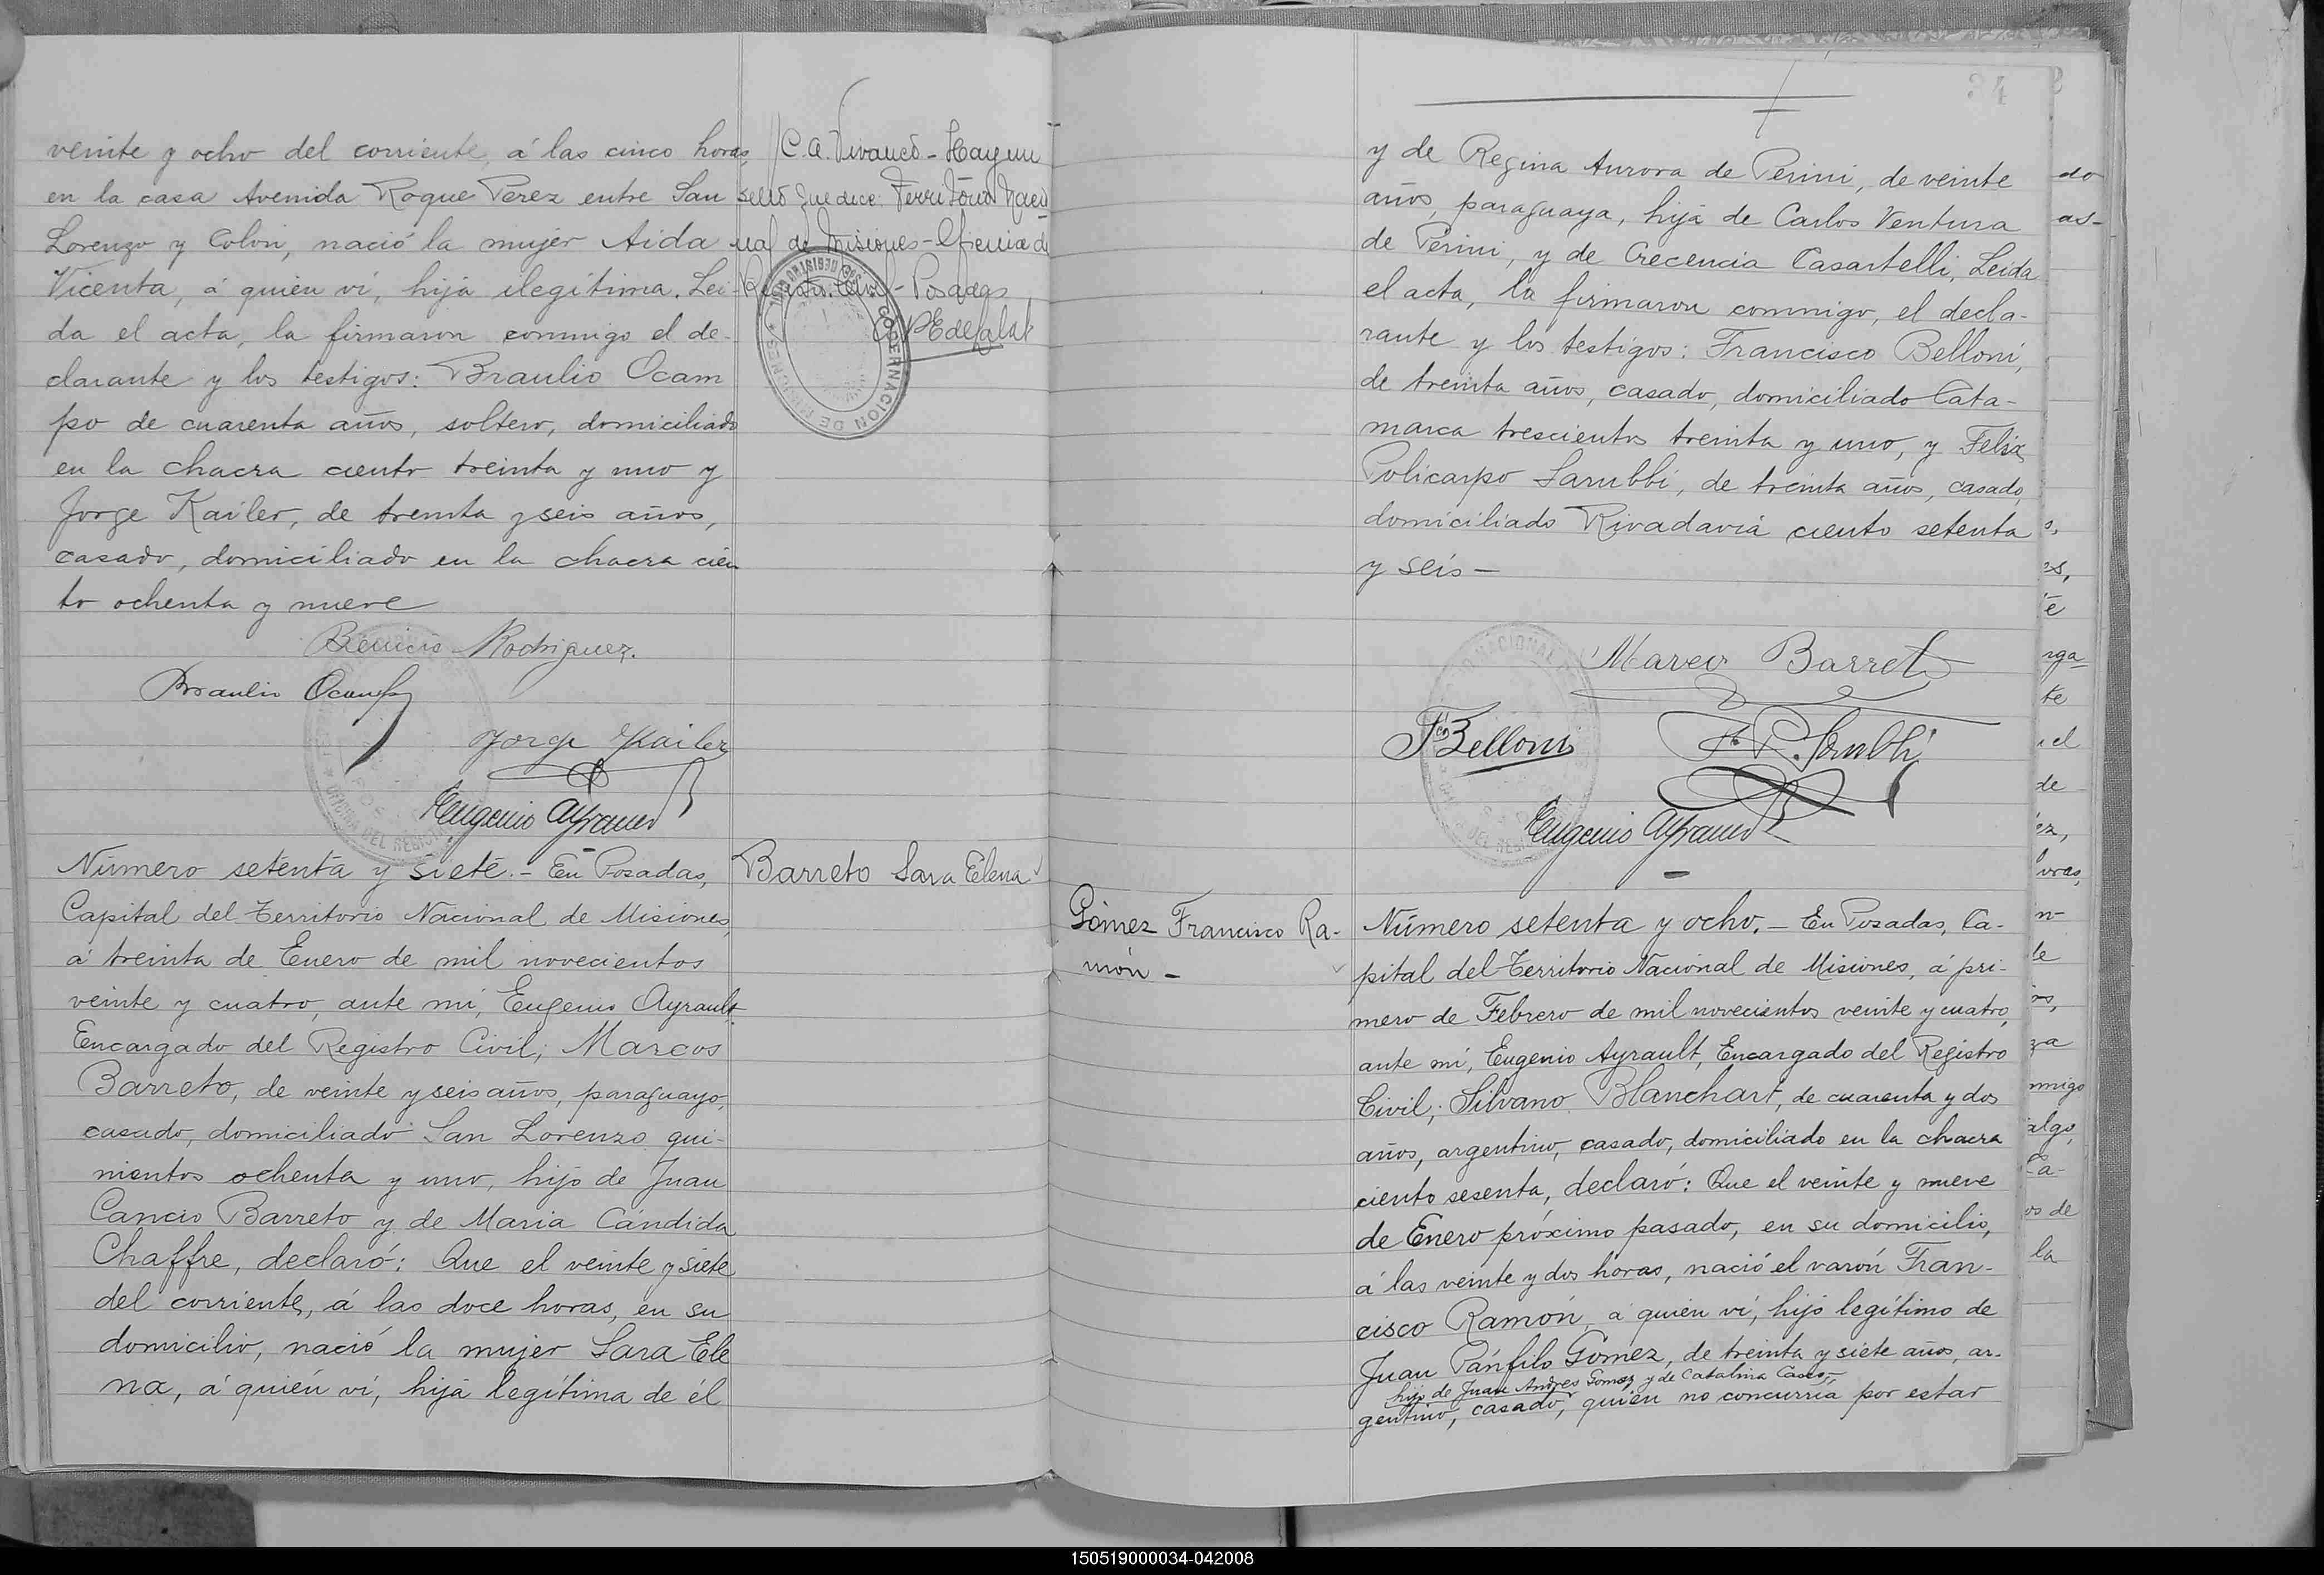 veinte y ocho del corriente, á las cinco horas,
en la casa Avenida Roque Perez entre San
Lorenzo y Colon, nació la mujer Aida
Vicenta, á quien ví, hija ilegítima. Lei-
da el acta, la firmaron conmigo el de-
clarante y los testigos: Braulio Ocam
po de cuarenta años, soltero, domiciliado
en la chacra ciento treinta y uno y
Jorge Kailer, de treinta y seis años,
casado, domiciliado en la chacra cien
to ochenta y nueve
Benicio Rodriguez.
Braulio Ocampo
Jorge Kailer
Eugenio Ayrault
C. A. Vivanco - Hay un
sello que dice: Territorio Nacio
nal de Misiones - Oficina de
Registro Civil - Posadas
GOBERNACION DE MISIONES
Número setenta y siete. - En Posadas,
Capital del Territorio Nacional de Misiones,
á treinta de Enero de mil novecientos
veinte y cuatro, ante mí, Eugenio Ayrault,
Encargado del Registro Civil; Marcos
Barreto, de veinte y seis años, paraguayo,
casado, domiciliado San Lorenzo qui-
nientos ochenta y uno, hijo de Juan
Cancio Barreto y de Maria Cándida
Chaffre, declaró: Que el veinte y siete
del corriente, á las doce horas, en su
domicilio, nació la mujer Sara Ele
na, á quién ví, hija legítima de él
Barreto Sara Elena
34
y de Regina Aurora de Perini, de veinte
años, paraguaya, hija de Carlos Ventura
de Perini, y de Crecencia Casartelli, Leida
el acta, la firmaron conmigo, el decla-
rante y los testigos: Francisco Belloni,
de treinta años, casado, domiciliado Cata-
marca trescientos treinta y uno, y Felix
Policarpo Sarubbi, de treinta años, casado,
domiciliado Rivadavia ciento setenta
y seis -
Marco Barreto
Fco Belloni
F. P. Sarubbi
Eugenio Ayrault
Gómez Francisco Ra-
món -
Número setenta y ocho. - En Posadas, Ca-
pital del Territorio Nacional de Misiones, á pri-
mero de Febrero de mil novecientos veinte y cuatro,
ante mí, Eugenio Ayrault, Encargado del Registro
Civil; Silvano Blanchart, de cuarenta y dos
años, argentino, casado, domiciliado en la chacra
ciento sesenta, declaró: Que el veinte y nueve
de Enero próximo pasado, en su domicilio,
á las veinte y dos horas, nació el varón Fran-
cisco Ramón, á quién ví, hijo legítimo de
Juan Pánfilo Gomez, de treinta y siete años, ar-
hijo de Juan Andres Gomez y de Catalina Casco,
gentino, casado, quién no concurria por estar
150519000034-042008